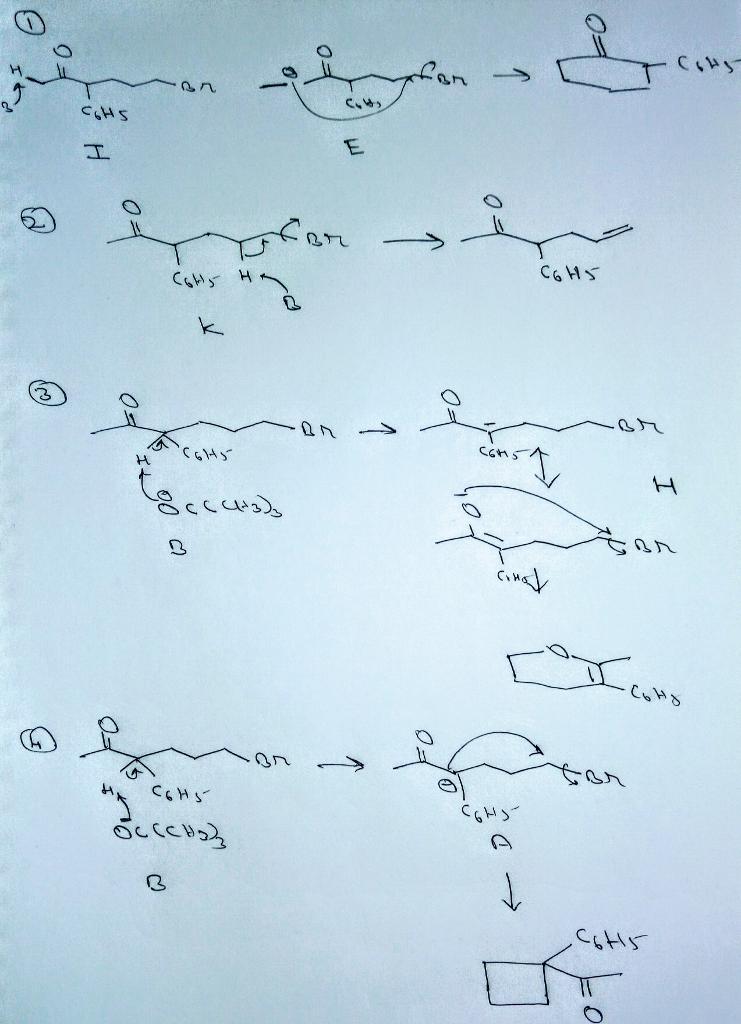 ①
O
H
Br
B
C6H5
I
O
⊖
Br
C6H5
E
O
C6H5
②
O
Br
C6H5
H
B
K
O
C6H5
③
O
Br
H
C6H5
⊖
OC(CH3)3
B
O
Br
C6H5
H
O
Br
C6H5
O
C6H5
④
O
Br
H
C6H5
OC(CH3)3
B
O
Br
⊖
C6H5
A
C6H5
O